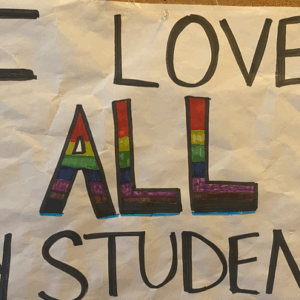 I LOVE
ALL
Y STUDEN